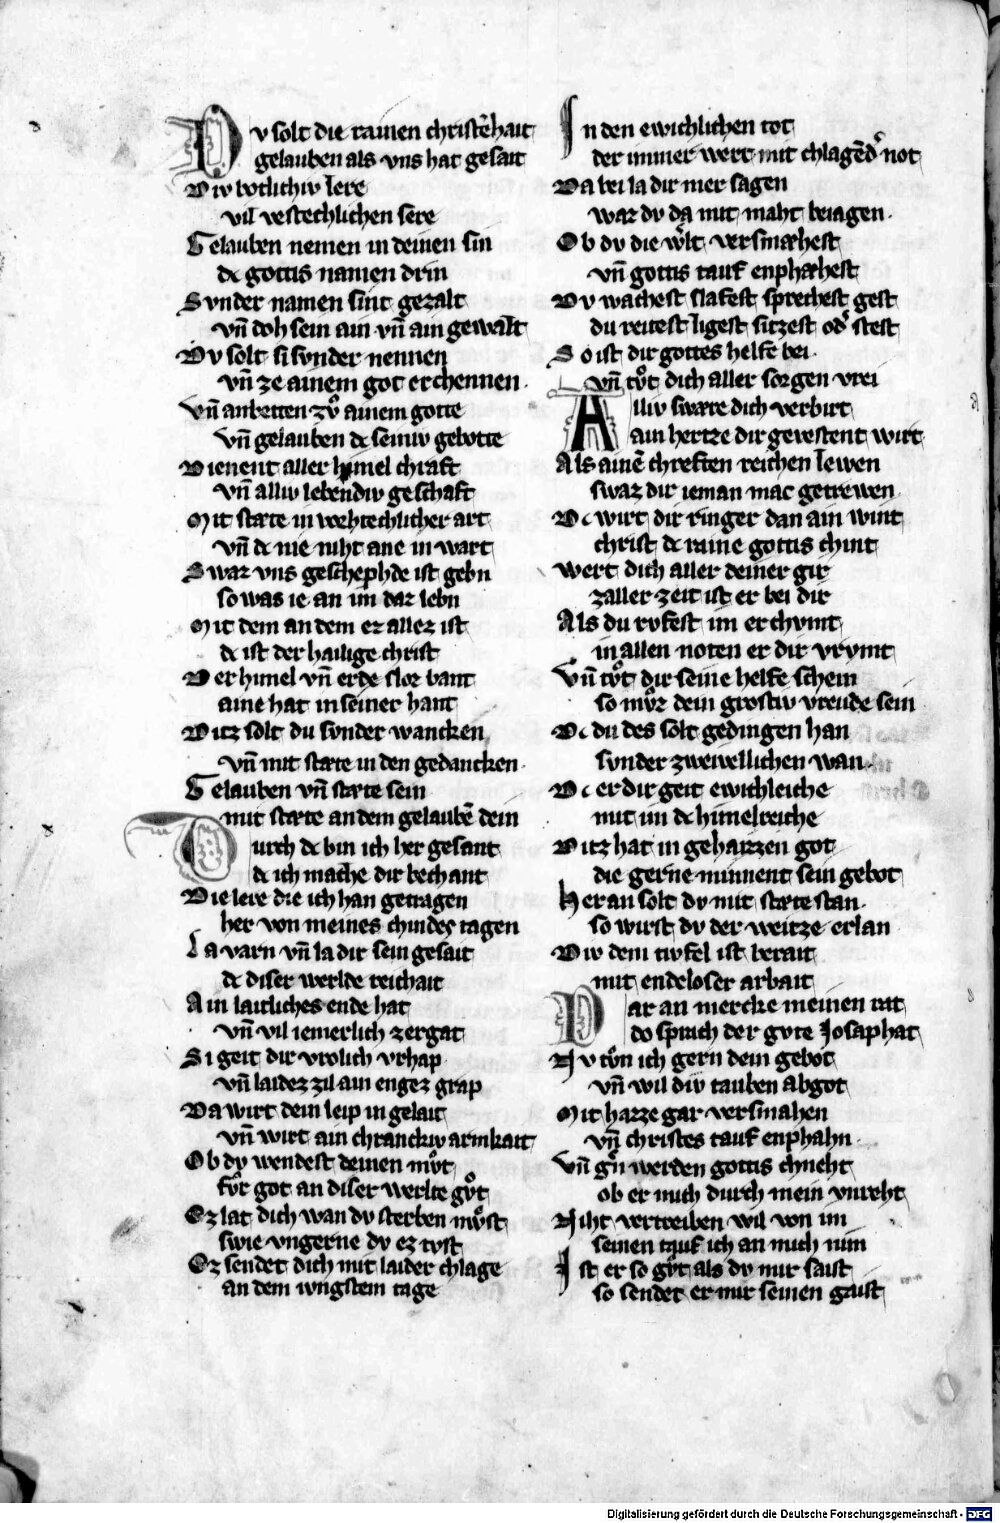 Dv solt die rainen christēhait
gelauben als vns hat gesait
Div botlichiv lere
vil vestechlichen sere
Gelauben nemen in deinen sin
dc gottis namen drin
Svnder namen sint gezalt
vn̄ doh sein ain vn̄ ain gewalt
Dv solt si svnder nennen
vn̄ ze ainem got erchennen
Vn̄ anbetten zvͦ ainem gotte
vn̄ gelauben dc seiniv gebotte
Dienent aller himel chraft
vn̄ alliv lebendiv geschaft
Mit stæte in
vn̄ dc nie niht ane in wart
Swaz vns geschephde ist gebn
so was ie an im daz lebn
Mit dem an dem ez allez ist
dc ist der hailige christ
Der himel vn̄ erde sloz bant
aine hat in seiner hant
Ditz solt du svnder wancken
vn̄ mit stæte in den gedancken
Gelauben vn̄ stæte sein
mit stæte an dem gelaubē dein
Durch dc bin ich her gesant
dc ich mache dir bechant
Die lere die ich han getragen
her von meines chindes tagen
La varn vn̄ la dir sein gesait
dc diser werlde reichait
Ain laitliches ende hat
vn̄ vil iemerlich zergat
Si geit dir vrolich vrhap
vn̄ laidez zil ain engez grap
Da wirt dein leip in gelait
vn̄ wirt ain chranckiv arinkait
Ob dv wendest deinen mvͦt
fvͤr got an diser werlte gvͦt
Ez lat dich wan dv sterben mvͦst
swie vngerne dv ez tvst
Ez sendet dich mit laider chlage
an dem ivngstem tage
In den ewichlichen tot
der immer wert mit chlagēdͤ not
Da bei la dir mer sagen
waz dv da mit maht beiagen
Ob dv die wͤlt versmæhest
vn̄ gottis tauf enphæhest
Dv wachest slafest sprechest gest
du reitest ligest sitzest odͤ stest
So ist dir gottes helfe bei
vn̄ tvͦt dich aller sorgen vrei
Alliv swære dich verbirt
ain hertze dir gevestent wirt
Als ainē chreften reichen lewen
swaz dir ieman mac getrewen
Dc wirt dir ringer dan ain wint
christ dc raine gottis chint
Wert dich aller deiner gir
zaller zeit ist er bei dir
Als du rvfest im er chvmt
in allen noten er dir vrvmt
Vn̄ tvͦt dir seine helfe schein
so mvͦz dein grostiv vreude sein
Dc du des solt gedingen han
svnder zweivellichen wan
Dc er dir geit ewichleiche
mit im dc himelreiche
Ditz hat in gehaizzen got
die gerne minnent sein gebot
Her an solt dv mit stæte stan
so wirst dv der weitze erlan
Div dem tivfel ist berait
mit endeloser arbait
Dar an mercke meinen rat
do sprach der gvte Josaphat
Nv tvͦn ich gern dein gebot
vn̄ wil div tauben abgot
Mit hazze gar versmahen
vn̄ christes tauf enphahn
Vn̄ gͤn werden gottis chneht
ob er mich durch mein vnreht
Niht vertreiben wil von im
seinen tauf ich an mich nim
Ist er so gvͦt als dv mir saist
so sendet er mir seinen gaist
Digitalisierung gefördert durch die Deutsche Forschungsgemeinschaft - DFG